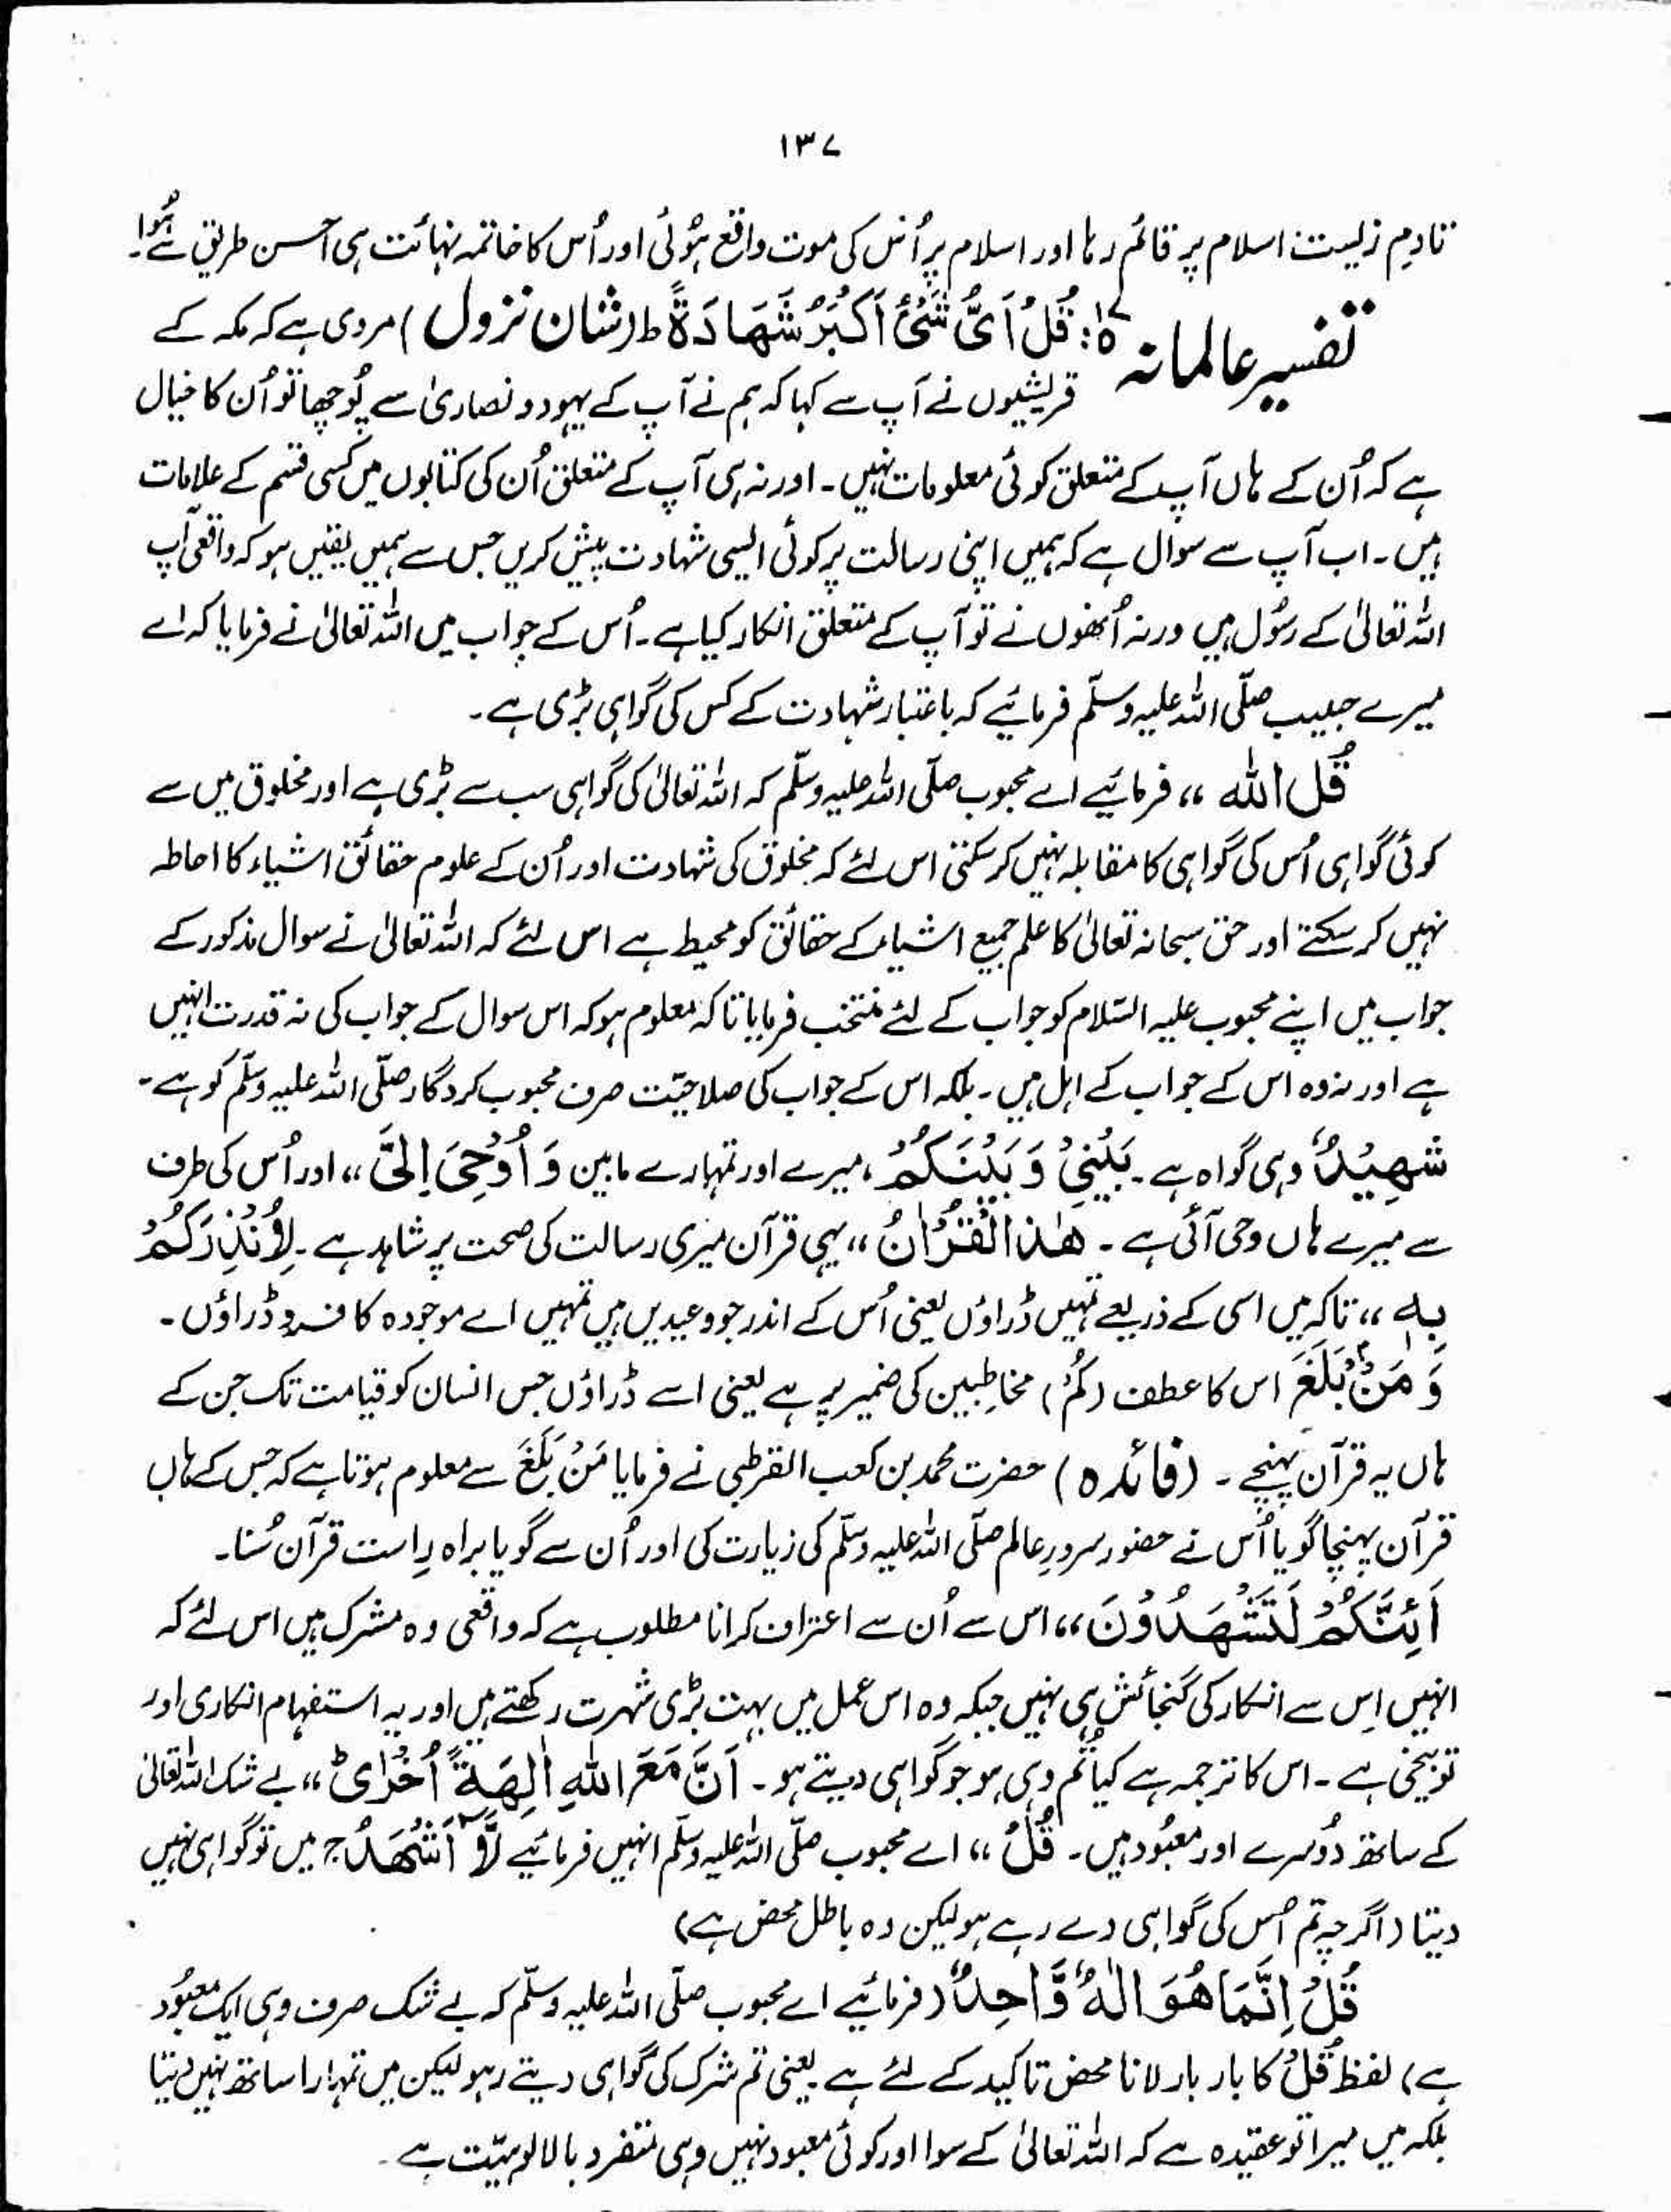 ۱۳۷
تادمِ زلیست اسلام پر قائم رہا اور اسلام پر اُس کی موت واقع ہوُئی اور اُس کا خاتمہ نہائت ہی احسن طریق سے ہُوا۔
تفسیر عالمانہ ؁۱۷: قُلْ اَیُّ شَیْئٍ اَکْبَرُ شَھَادَۃً ط (شان نزول) مروی ہے کہ مکہ کے
قریشیوں نے آپ سے کہا کہ ہم نے آپ کے یہود و نصاریٰ سے پُوچھا تو اُن کا خیال
ہے کہ اُن کے ہاں آپ کے متعلق کوئی معلومات نہیں۔ اور نہ ہی آپ کے متعلق اُن کی کتابوں میں کسی قسم کے علامات
ہیں۔ اب آپ سے سوال ہے کہ ہمیں اپنی رسالت پر کوئی ایسی شہادت پیش کریں جس سے ہمیں یقیں ہو کہ واقعی آپ
اللہ تعالیٰ کے رسُول ہیں ورنہ اُنھوں نے تو آپ کے متعلق انکار کیا ہے۔ اُس کے جواب میں اللہ تعالیٰ نے فرمایا کہ اے
میرے حبیب صلّی اللہ علیہ وسلّم فرمائیے کہ باعتبار شہادت کے کس کی گواہی بڑی ہے۔
قُلِ اللّٰہ ،، فرمائیے اے محبوب صلّی اللہ علیہ وسلّم کہ اللہ تعالیٰ کی گواہی سب سے بڑی ہے اور مخلوق میں سے
کوئی گواہی اُس کی گواہی کا مقابلہ نہیں کر سکتی اس لئے کہ مخلوق کی شہادت اور اُن کے علوم حقائق اشیاء کا احاطہ
نہیں کر سکتے اور حق سبحانہ تعالیٰ کا علم جمیع اشیاء کے حقائق کو محیط ہے اس لئے کہ اللہ تعالیٰ نے سوال مذکور کے
جواب میں اپنے محبوب علیہ السّلام کو جواب کے لئے منتخب فرمایا تاکہ معلوم ہو کہ اس سوال کے جواب کی نہ قدرت انہیں
ہے اور نہ وہ اس کے جواب کے اہل ہیں۔ بلکہ اس کے جواب کی صلاحیّت صرف محبوب کردگار صلّی اللہ علیہ وسلّم کو ہے۔
شَھِیْدٌ وہی گواہ ہے۔ بَیْنِیْ وَ بَیْنَکُمْ ، میرے اور تمہارے مابین وَ اُوْحِیَ اِلَیَّ ،، اور اُس کی طرف
سے میرے ہاں وحی آئی ہے۔ ھٰذَا الْقُرْاٰنُ ،، یہی قرآن میری رسالت کی صحت پر شاہد ہے۔ لِاُنْذِرَکُمْ
بِہٖ ،، تاکہ میں اسی کے ذریعے تمہیں ڈراؤں یعنی اُس کے اندر جو وعیدیں ہیں تمہیں اے موجودہ کافرو ڈراؤں۔
وَ مَنْۢ بَلَغَ اس کا عطف (کُمْ) مخاطِبین کی ضمیر پر ہے یعنی اسے ڈراؤں جس انسان کو قیامت تک جن کے
ہاں یہ قرآن پہنچے۔ (فائدہ) حضرت محمد بن کعب القرظی نے فرمایا مَنْۢ بَلَغَ سے معلوم ہوتا ہے کہ جس کے ہاں
قرآن پہنچا گویا اُس نے حضور سرورِ عالم صلّی اللہ علیہ وسلّم کی زیارت کی اور اُن سے گویا براہ راست قرآن سُنا۔
اَئِنَّکُمْ لَتَشْھَدُوْنَ ،، اس سے اُن سے اعتراف کرانا مطلوب ہے کہ واقعی وہ مشرک ہیں اس لئے کہ
انہیں اِس سے انکار کی گنجائش ہی نہیں جبکہ وہ اس عمل میں بہت بڑی شہرت رکھتے ہیں اور یہ استفہام انکاری اور
توبیخی ہے۔ اس کا ترجمہ ہے کیا تُم وہی ہو جو گواہی دیتے ہو۔ اَنَّ مَعَ اللّٰہِ اٰلِھَۃً اُخْرٰی ط ،، بے شک اللہ تعالیٰ
کے ساتھ دُوسرے اور معبُود ہیں۔ قُلْ ،، اے محبوب صلّی اللہ علیہ وسلّم انہیں فرمائیے لَّآ اَشْھَدُ ج میں تو گواہی نہیں
دیتا (اگرچہ تم اُس کی گواہی دے رہے ہو لیکن وہ باطل محض ہے)
قُلْ اِنَّمَا ھُوَ اِلٰہٌ وَّاحِدٌ (فرمائیے اے محبوب صلّی اللہ علیہ وسلّم کہ بے شک صرف وہی ایک معبُود
ہے) لفظ قُلْ کا بار بار لانا محض تاکید کے لئے ہے یعنی تم شرک کی گواہی دیتے رہو لیکن میں تمہارا ساتھ نہیں دیتا
بلکہ میں میرا تو عقیدہ ہے کہ اللہ تعالیٰ کے سوا اور کوئی معبود نہیں وہی متفرد بالالوہیّت ہے۔